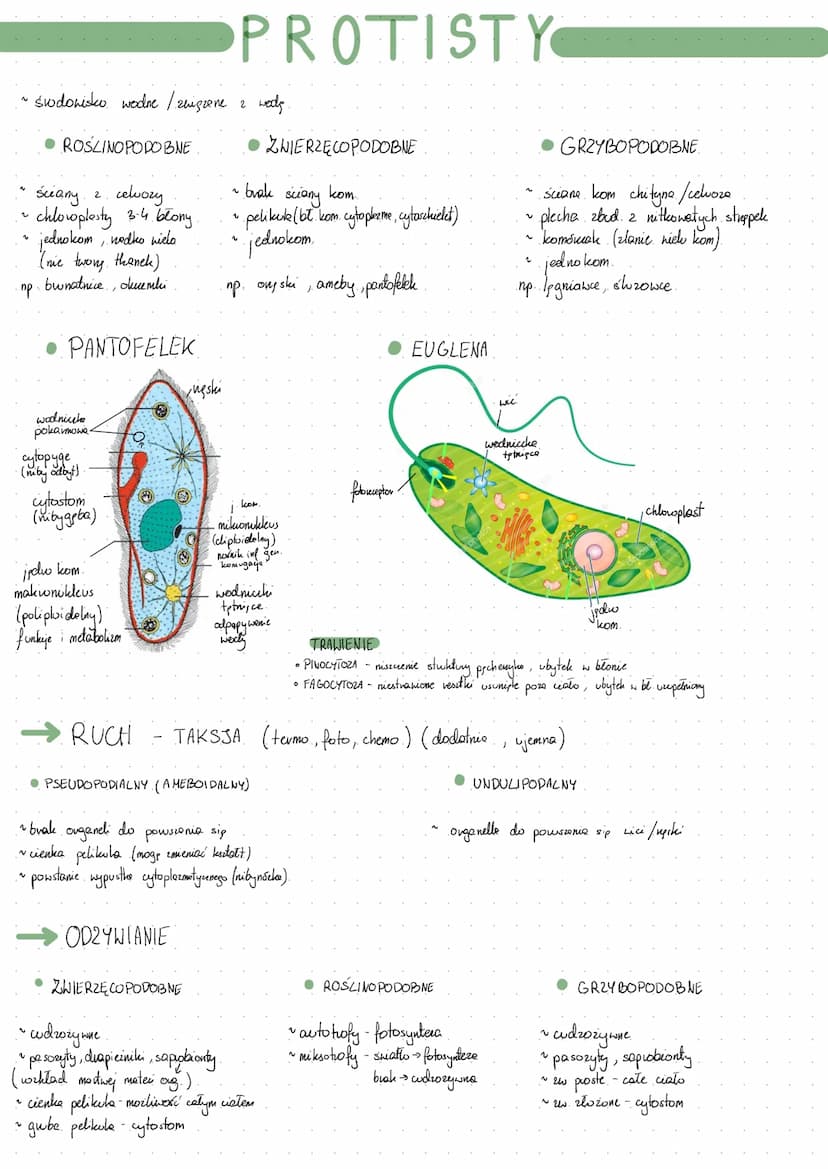 PROTISTY
~ środowisko wodne / związane z wodą
• ROŚLINOPODOBNE
~ ściany z celuozy
~ chloroplasty 3-4 błony
~ jednokom, rzadko wielo
(nie tworzą tkanek)
np. brunatnice, okrzemki
• ZWIERZĘCOPODOBNE
~ brak ściany kom.
~ pelikula (bł. kom. cytoplazma, cytoszkielet)
~ jednokom.
np. orzęski, ameby, pantofelek
• GRZYBOPODOBNE
~ ściana kom chityna/celuoza
~ plecha zbud. z nitkowatych strzępek
~ komórczak (zlanie wielu kom)
~ jednokom.
np. lęgniowce, śluzowce
• PANTOFELEK
rzęski
wodniczka
pokarmowa
cytopyge
(niby odbyt)
cytostom
(nibygęba)
jądro kom.
makronukleus
(poliploidalny)
funkcje i metabolizm
j. kom.
mikronukleus
(diploidalny)
nośnik inf. gen.
koniugacja
wodniczki
tętniące
odpompywanie
wody
• EUGLENA
wić
wodniczka
tętniąca
fotoreceptor
chloroplast
jądro
kom.
TRAWIENIE
• PINOCYTOZA - niszczenie struktury pęcherzyka, ubytek w błonie
• FAGOCYTOZA - niestrawione resztki usunięte poza ciało, ubytek w bł. uzupełniony
→ RUCH - TAKSJA (termo, foto, chemo) (dodatnia, ujemna)
• PSEUDOPODIALNY (AMEBOIDALNY)
~ brak organelli do poruszania się
~ cienka pelikula (mogą zmieniać kształt)
~ powstanie wypustka cytoplazmatycznego (nibynóżka)
• UNDULIPODALNY
~ organelle do poruszania się wici/rzęski
→ ODŻYWIANIE
• ZWIERZĘCOPODOBNE
~ cudzożywne
~ pasożyty, drapieżniki, saprobionty
(rozkład martwej materii org.)
~ cienka pelikula - możliwość całym ciałem
~ gruba pelikula - cytostom
• ROŚLINOPODOBNE
~ autotrofy - fotosynteza
~ miksotrofy - światło → fotosynteza
brak → cudzożywna
• GRZYBOPODOBNE
~ cudzożywne
~ pasożyty, saprobionty
~ zw. proste - całe ciało
~ zw. złożone - cytostom